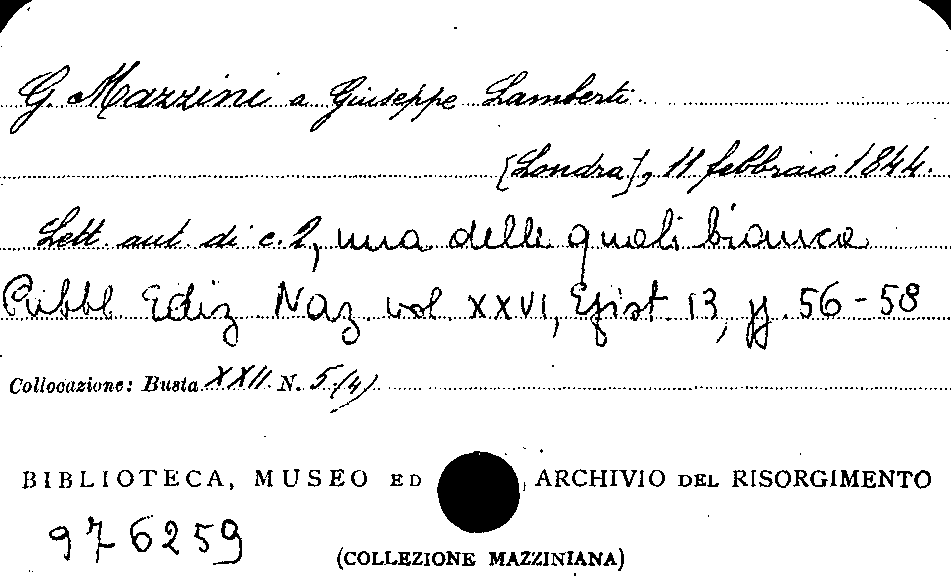 G. Mazzini a Giuseppe Lamberti
[Londra], 11 febbraio 1844.
Lett. aut. di c. 2, una delle quali bianca
Pubbl Ediz Naz. vol XXVI, Epist. 13, pp. 56-58
Collocazione: Busta XXII N. 5 (4)
BIBLIOTECA, MUSEO ED ARCHIVIO DEL RISORGIMENTO
976259
(COLLEZIONE MAZZINIANA)